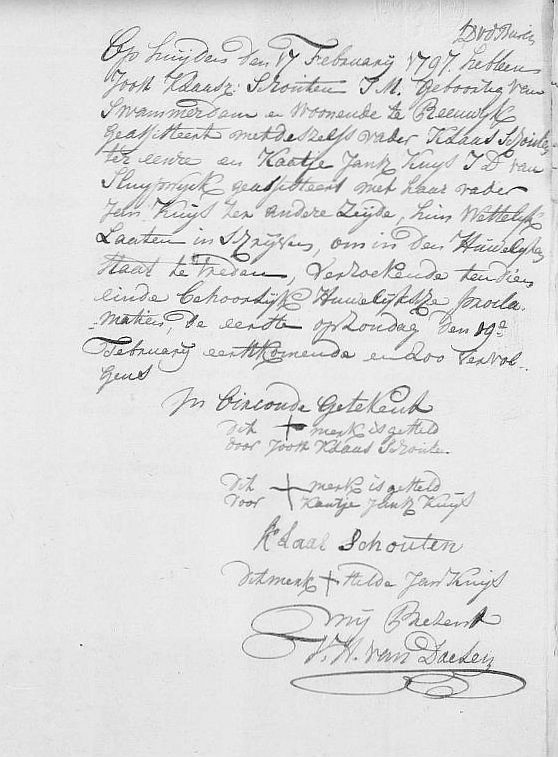 Op huijden den 17 February 1797. hebben
Joost Klaasz: Schouten J.M. Geboortig van
Swammerdam en Woonende te Reeuwijk
geassisteert met deszelfs vader Klaas Schouten
ter eenre en Kaatje Jansz Kuijs J.D. van
Sluypwijck geassisteert met haar vader
Jan Kuijs ter andere Zeijde, hun Wettelijk
Laaten in Schrijven, om in den Huwelijken
Staat te treden, Verzoekende ten dien
einde behoorlijk Huwelijksze procla-
matien, de eerste op Zondag den 19e
February eerstkomende en zoo vervol-
gens
In Oirconde Getekent
Dit + merk is gesteld
door Joost Klaas Schoute.
Dit + merk is gesteld
voor Kaatje Jansz Kuijs
Klaas Schouten
Dit merk + stelde Jan Kuijs
mij Present
J. H. van